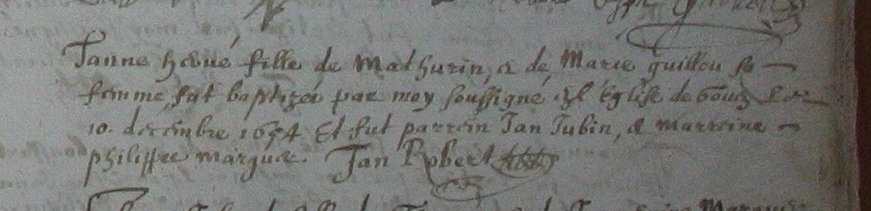 Janne hervé fille de Mathurin, & de Marie guillou sa
femme, fut baptizée par moy soussigné en l'église de le
10. decembre 1654 Et fut parrein Jan Jubin, & marreine
philippe marquer. Jan Robert